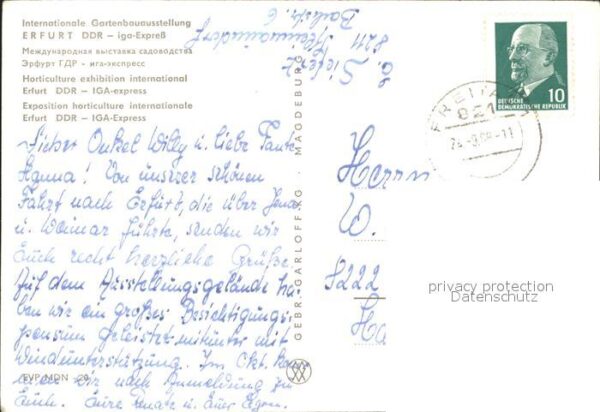 Internationale Gartenbauausstellung
ERFURT DDR – iga-Expreß
Международная выставка садоводства
Эрфурт ГДР – ига-экспресс
Horticulture exhibition international
Erfurt DDR – IGA-express
Exposition horticulture internationale
Erfurt DDR – IGA-Express
Lieber Onkel Willy u. liebe Tante
Hanna! Von unserer schönen
Fahrt nach Erfurt, die über Jena
u. Weimar führte, senden wir
Euch recht herzliche Grüße.
Auf dem Ausstellungsgelände ha-
ben wir ein großes Besichtigungs-
pensum geleistet mitunter mit
Windunterstützung. Im Okt. kom-
men wir nach Anmeldung zu
Euch. Eure Renate u. Euer Egon.
EVP MDN -,20
E. Siefert
8211
Bahnstr. 6
GEBR. GARLOFF KG. MAGDEBURG
10
DEUTSCHE
DEMOKRATISCHE REPUBLIK
FREITAL
821
Herrn
W.
8222
Ha
privacy protection
Datenschutz